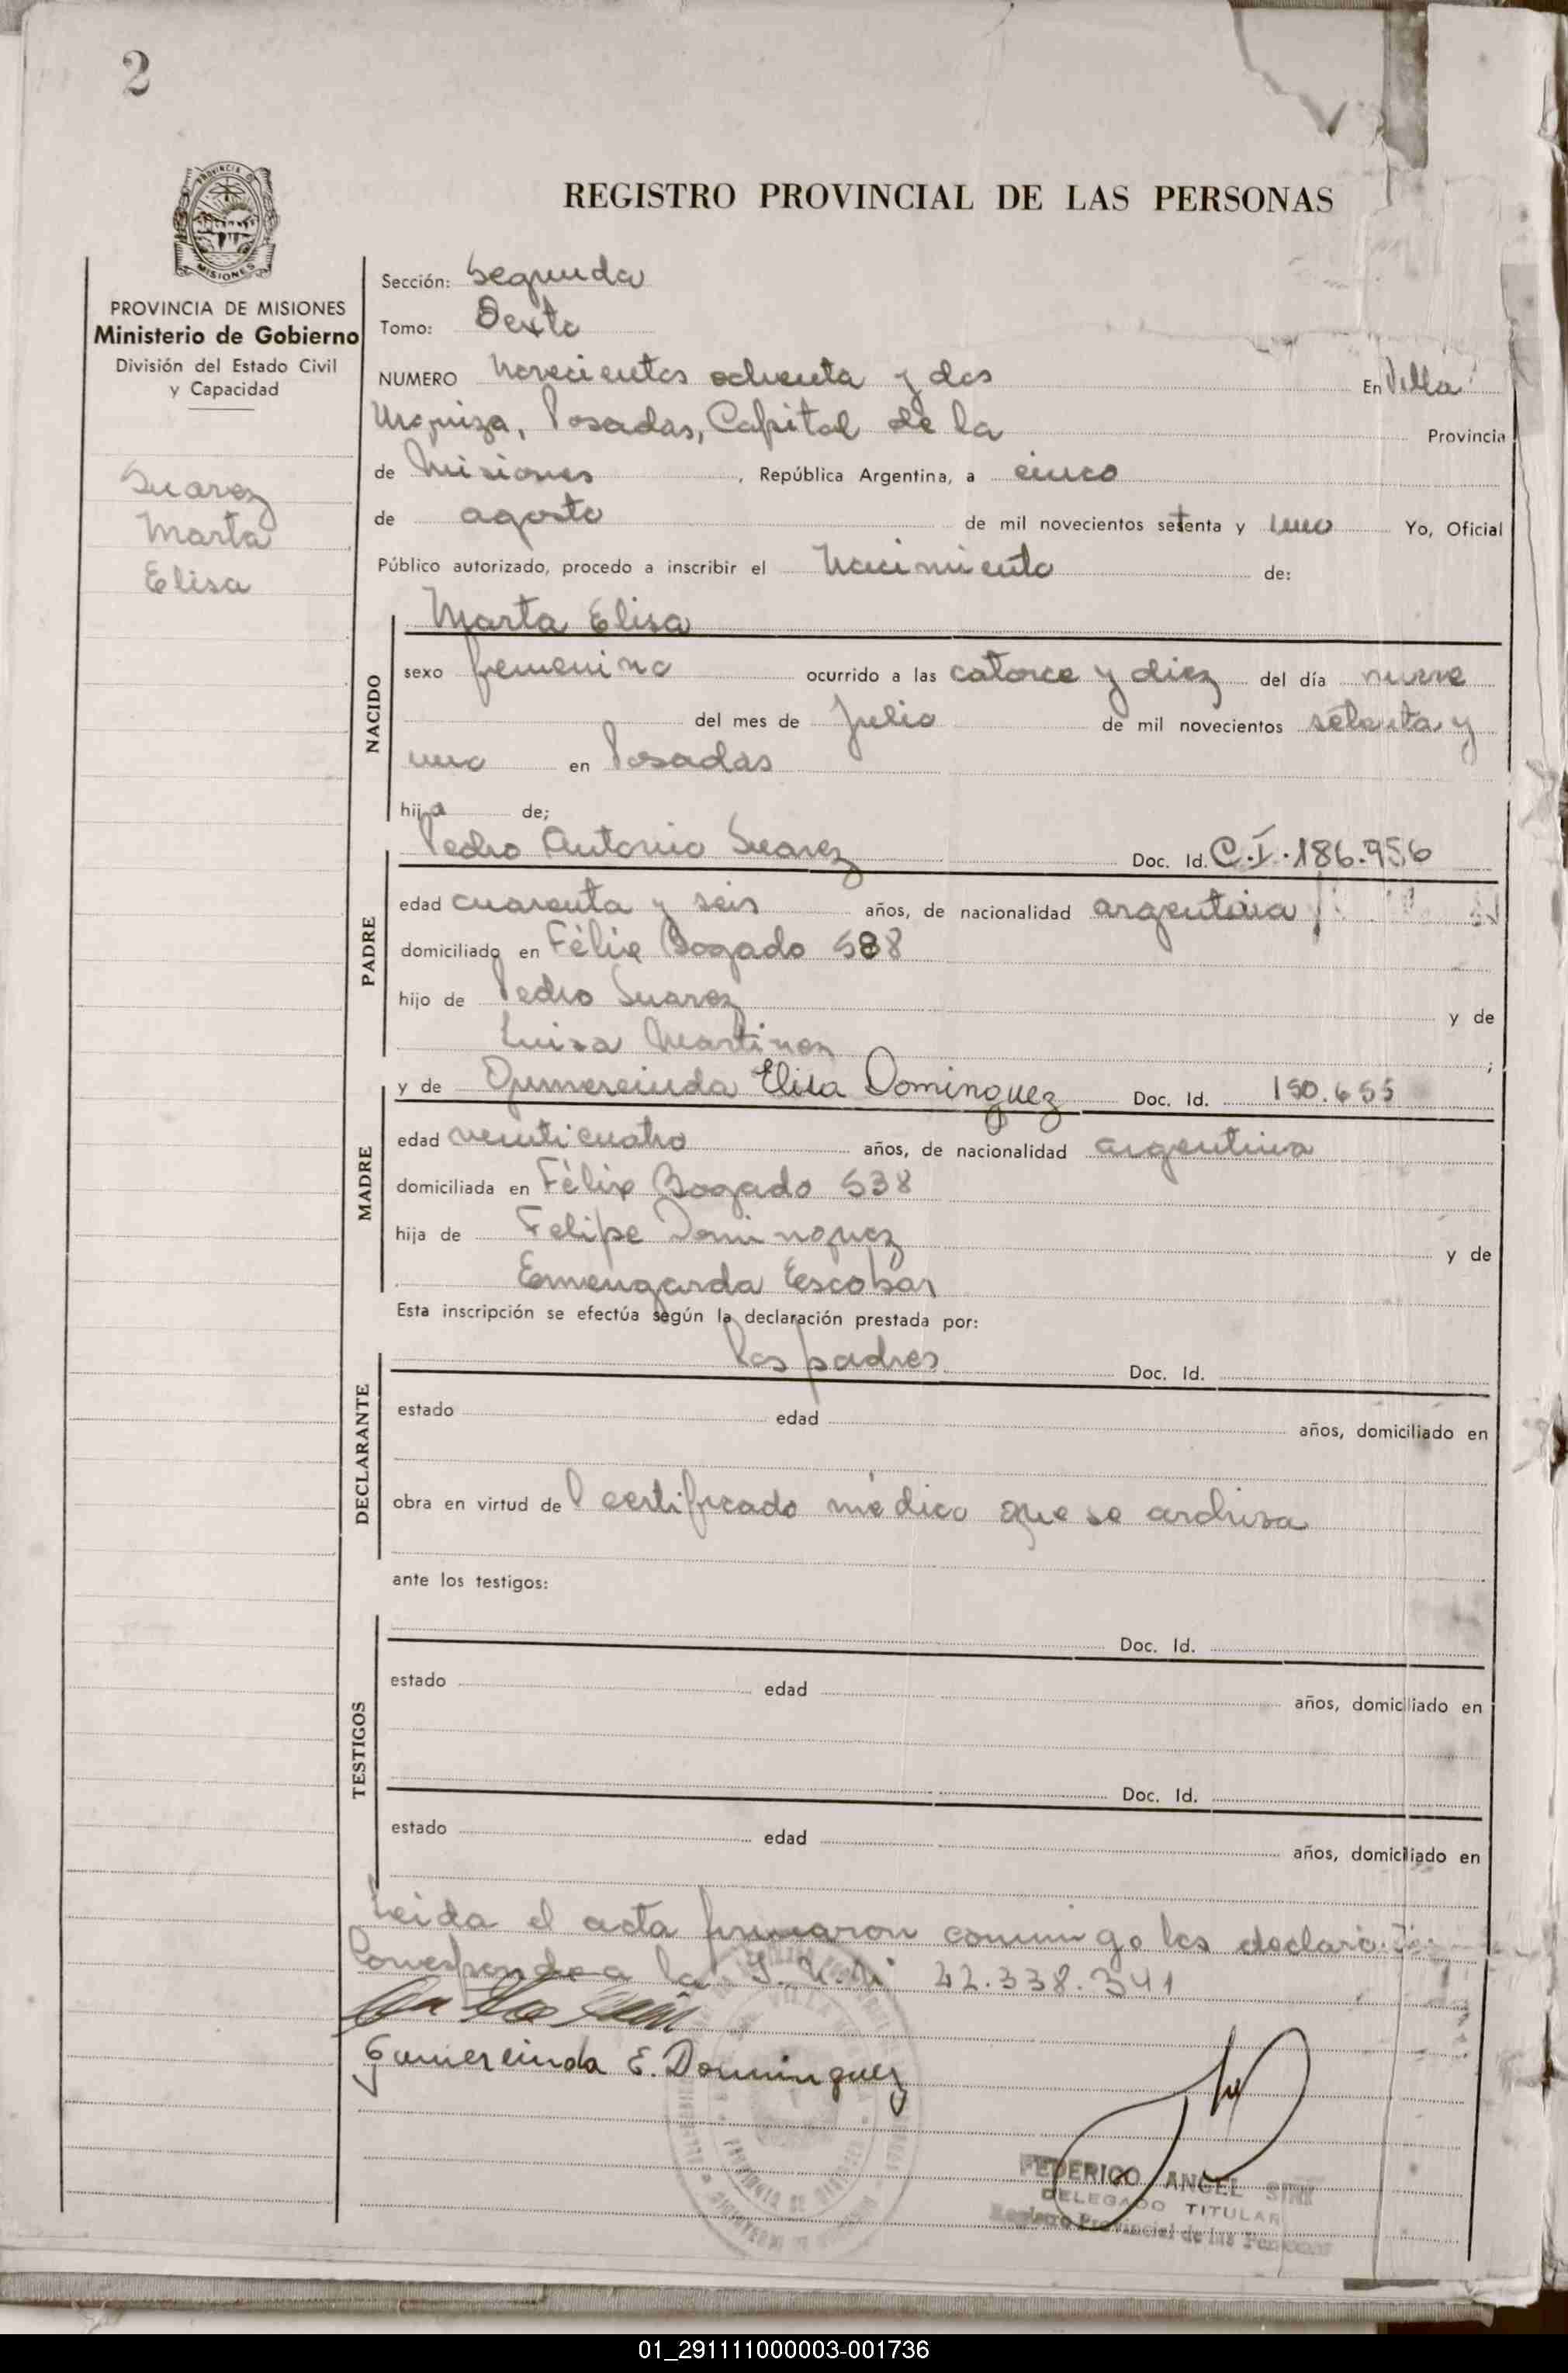 2
PROVINCIA DE MISIONES
MISIONES
PROVINCIA DE MISIONES
Ministerio de Gobierno
División del Estado Civil
y Capacidad
Suarez
Marta
Elisa
REGISTRO PROVINCIAL DE LAS PERSONAS
Sección: Segunda
Tomo: Sexto
NUMERO Novecientos ochenta y dos En Villa
Urquiza, Posadas, Capital de la Provincia
de Misiones, República Argentina, a cinco
de agosto de mil novecientos setenta y uno Yo, Oficial
Público autorizado, procedo a inscribir el Nacimiento de:
NACIDO
Marta Elisa
sexo femenino ocurrido a las catorce y diez del día nueve
del mes de Julio de mil novecientos setenta y
uno en Posadas
hija de;
PADRE
Pedro Antonio Suarez Doc. Id. C.I. 186.956
edad cuarenta y seis años, de nacionalidad argentina
domiciliado en Félix Bogado 588
hijo de Pedro Suarez y de
Luisa Martinez;
MADRE
y de Gumercinda Elisa Dominguez Doc. Id. 150.655
edad veinticuatro años, de nacionalidad argentina
domiciliada en Félix Bogado 538
hija de Felipe Dominguez y de
Emengarda Escobar
Esta inscripción se efectúa según la declaración prestada por:
DECLARANTE
los padres Doc. Id.
estado edad años, domiciliado en
obra en virtud del certificado médico que se archiva
ante los testigos:
TESTIGOS
Doc. Id.
estado edad años, domiciliado en
Doc. Id.
estado edad años, domiciliado en
Leida el acta firmaron conmigo los
Corresponde a la 22.338.341
Gumercinda E. Dominguez
FEDERICO ANGEL
DELEGADO TITULAR
Registro Provincial de las Personas
01_291111000003-001736